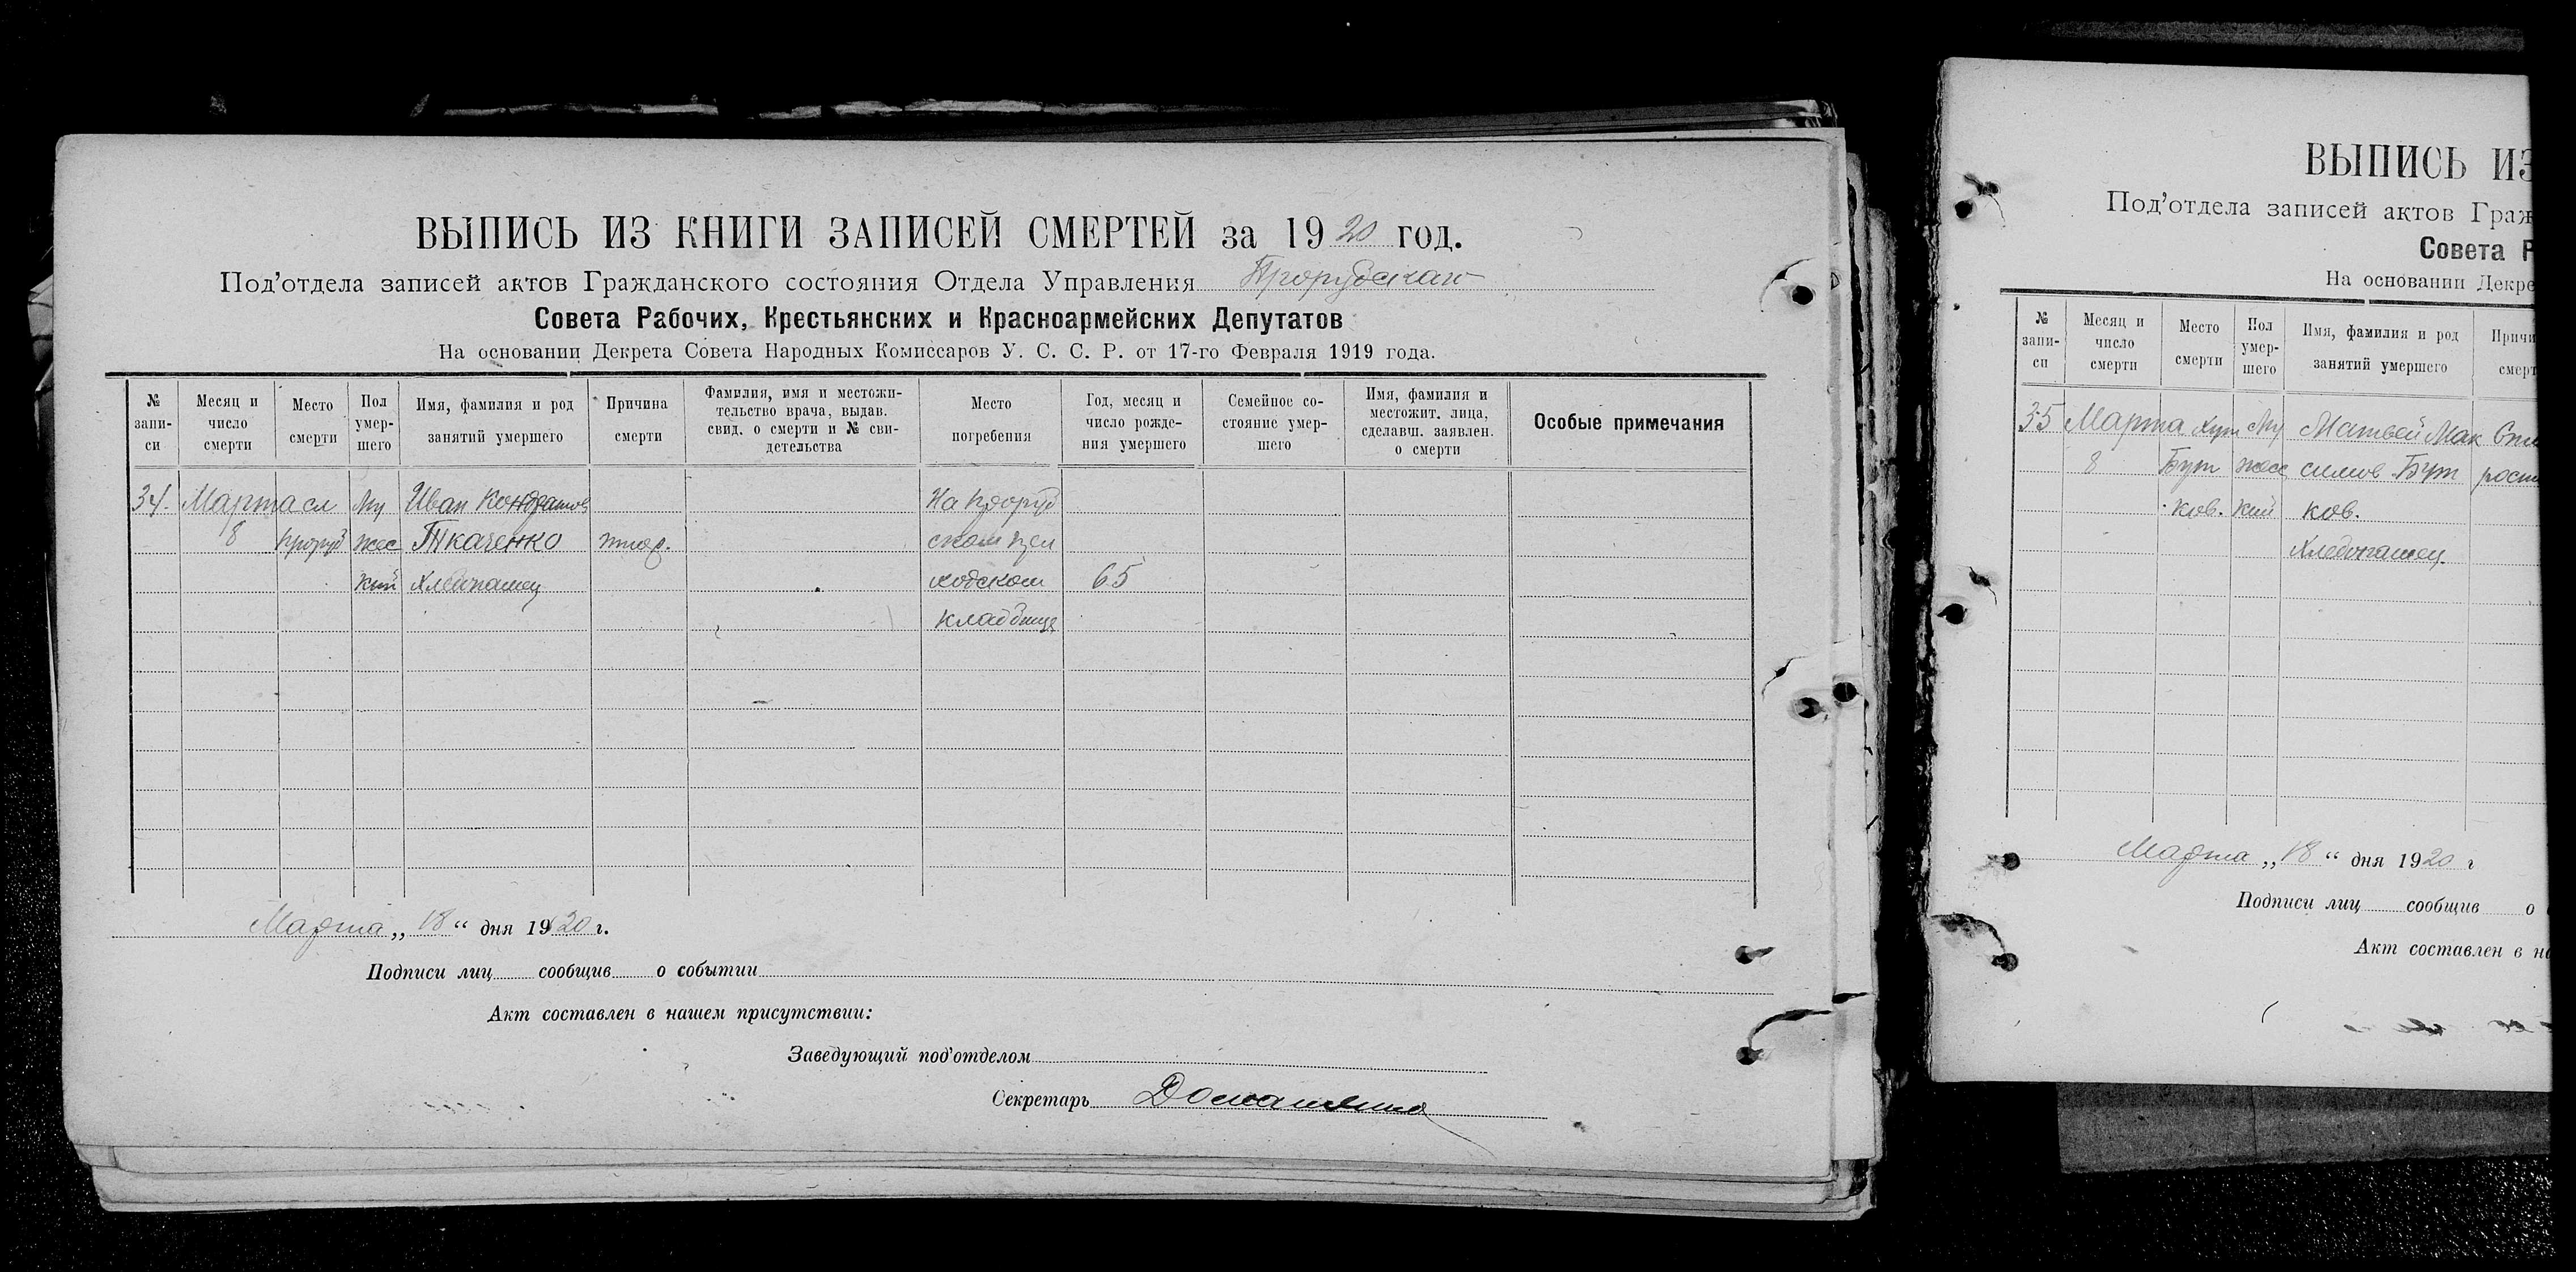 ВЫПИСЬ ИЗ КНИГИ ЗАПИСЕЙ СМЕРТЕЙ за 1920 год.
Под'отдела записей актов Гражданского состояния Отдела Управления
Совета Рабочих, Крестьянских и Красноармейских Депутатов
На основании Декрета Совета Народных Комиссаров У. С. С. Р. от 17-го Февраля 1919 года.
№ запи- си
Месяц и число смерти
Место смерти
Пол умер- шего
Имя, фамилия и род занятий умершего
Причина смерти
Фамилия, имя и местожи- тельство врача, выдав. свид. о смерти и № сви- детельства
Место погребения
Год, месяц и число рожде- ния умершего
Семейное со- стояние умер- шего
Имя, фамилия и местожит. лица, сделавш. заявлен. о смерти
Особые примечания
34. Марта сл Му Иван Кондратов На Проруб
8 Проруб жес Ткаченко ском
кий Хлебопашец ходском 65
кладбище
Марта „18“ дня 1920 г.
Подписи лиц сообщив о событии
Акт составлен в нашем присутствии:
Заведующий под'отделом
Секретарь
ВЫПИСЬ ИЗ
Под'отдела записей актов Граж
Совета Р
На основании Декре
№ запи- си
Месяц и число смерти
Место смерти
Пол умер- шего
Имя, фамилия и род занятий умершего
Причи смерт
35 Марта Хут Му Матвей Мак
8 Бут жес симов Бут рост
ков. кий ков.
Хлебопашец.
Марта „18“ дня 1920 г
Подписи лиц сообщив о
Акт составлен в на